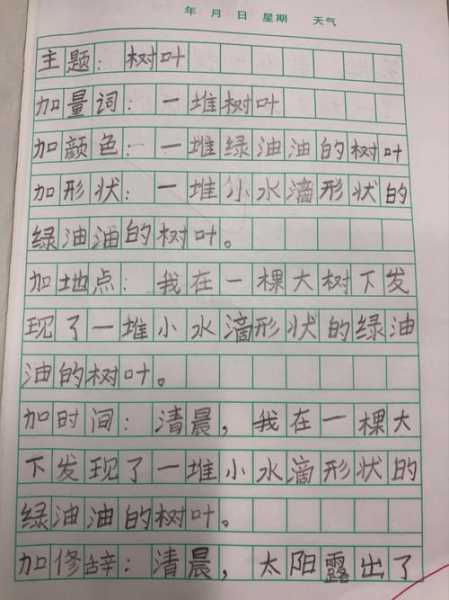 年 月 日 星期 天气
主题：树叶
加量词：一堆树叶
加颜色：一堆绿油油的树叶
加形状：一堆小水滴形状的
绿油油的树叶。
加地点：我在一棵大树下发
现了一堆小水滴形状的绿油
油的树叶。
加时间：清晨，我在一棵大
下发现了一堆小水滴形状的
绿油油的树叶。
加修辞：清晨，太阳露出了